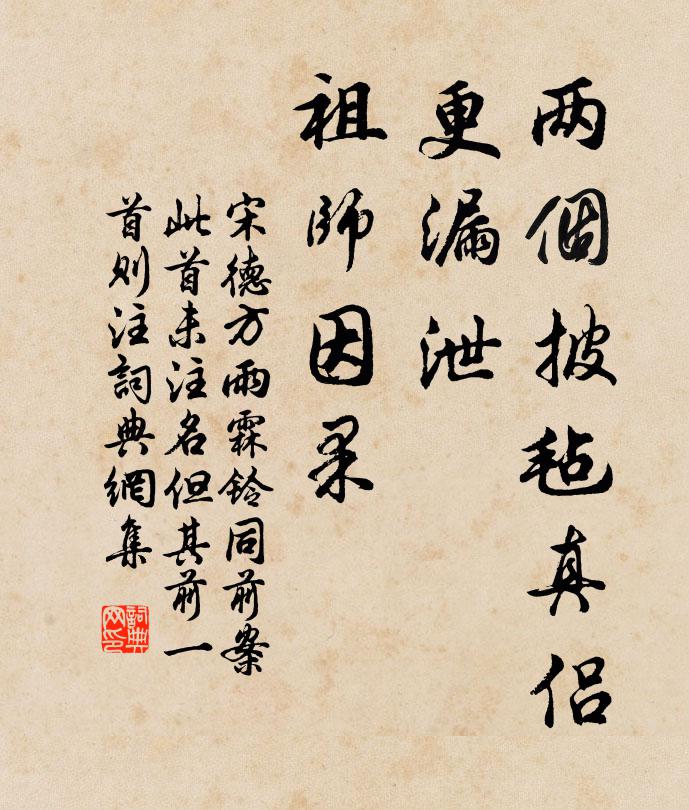 两個披毡真侣
更漏泄
祖師因果
宋德方雨霖铃同前案
此首未注名但其前一
首则注詞典網集
詞典网印